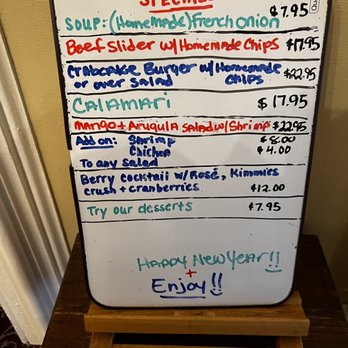 SPECIALS
SOUP: (Homemade) French Onion $7.95
Beef Slider w/ Homemade Chips $17.95
Crabcake Burger w/ Homemade Chips $22.95
or over Salad
CALAMARI $17.95
Mango + Arugula Salad w/ Shrimp $22.95
Add on: Shrimp $8.00
Chicken $4.00
To any Salad
Berry Cocktail w/ Rosé, Kimmies
crush + cranberries $12.00
Try our desserts $7.95
HAPPY NEW YEAR!!
+
Enjoy!!